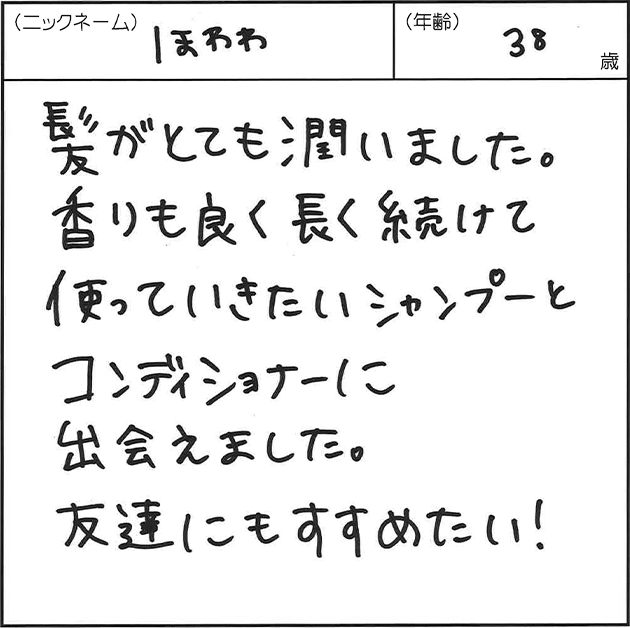 (ニックネーム) ほわわ (年齢) 38 歳
髪がとても潤いました。
香りも良く長く続けて
使っていきたいシャンプーと
コンディショナーに
出会えました。
友達にもすすめたい!